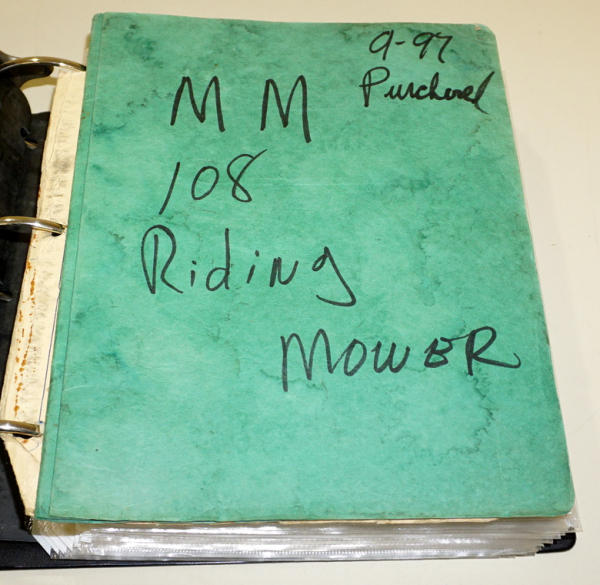 9-97
Purchased
MM
108
Riding
MOWER